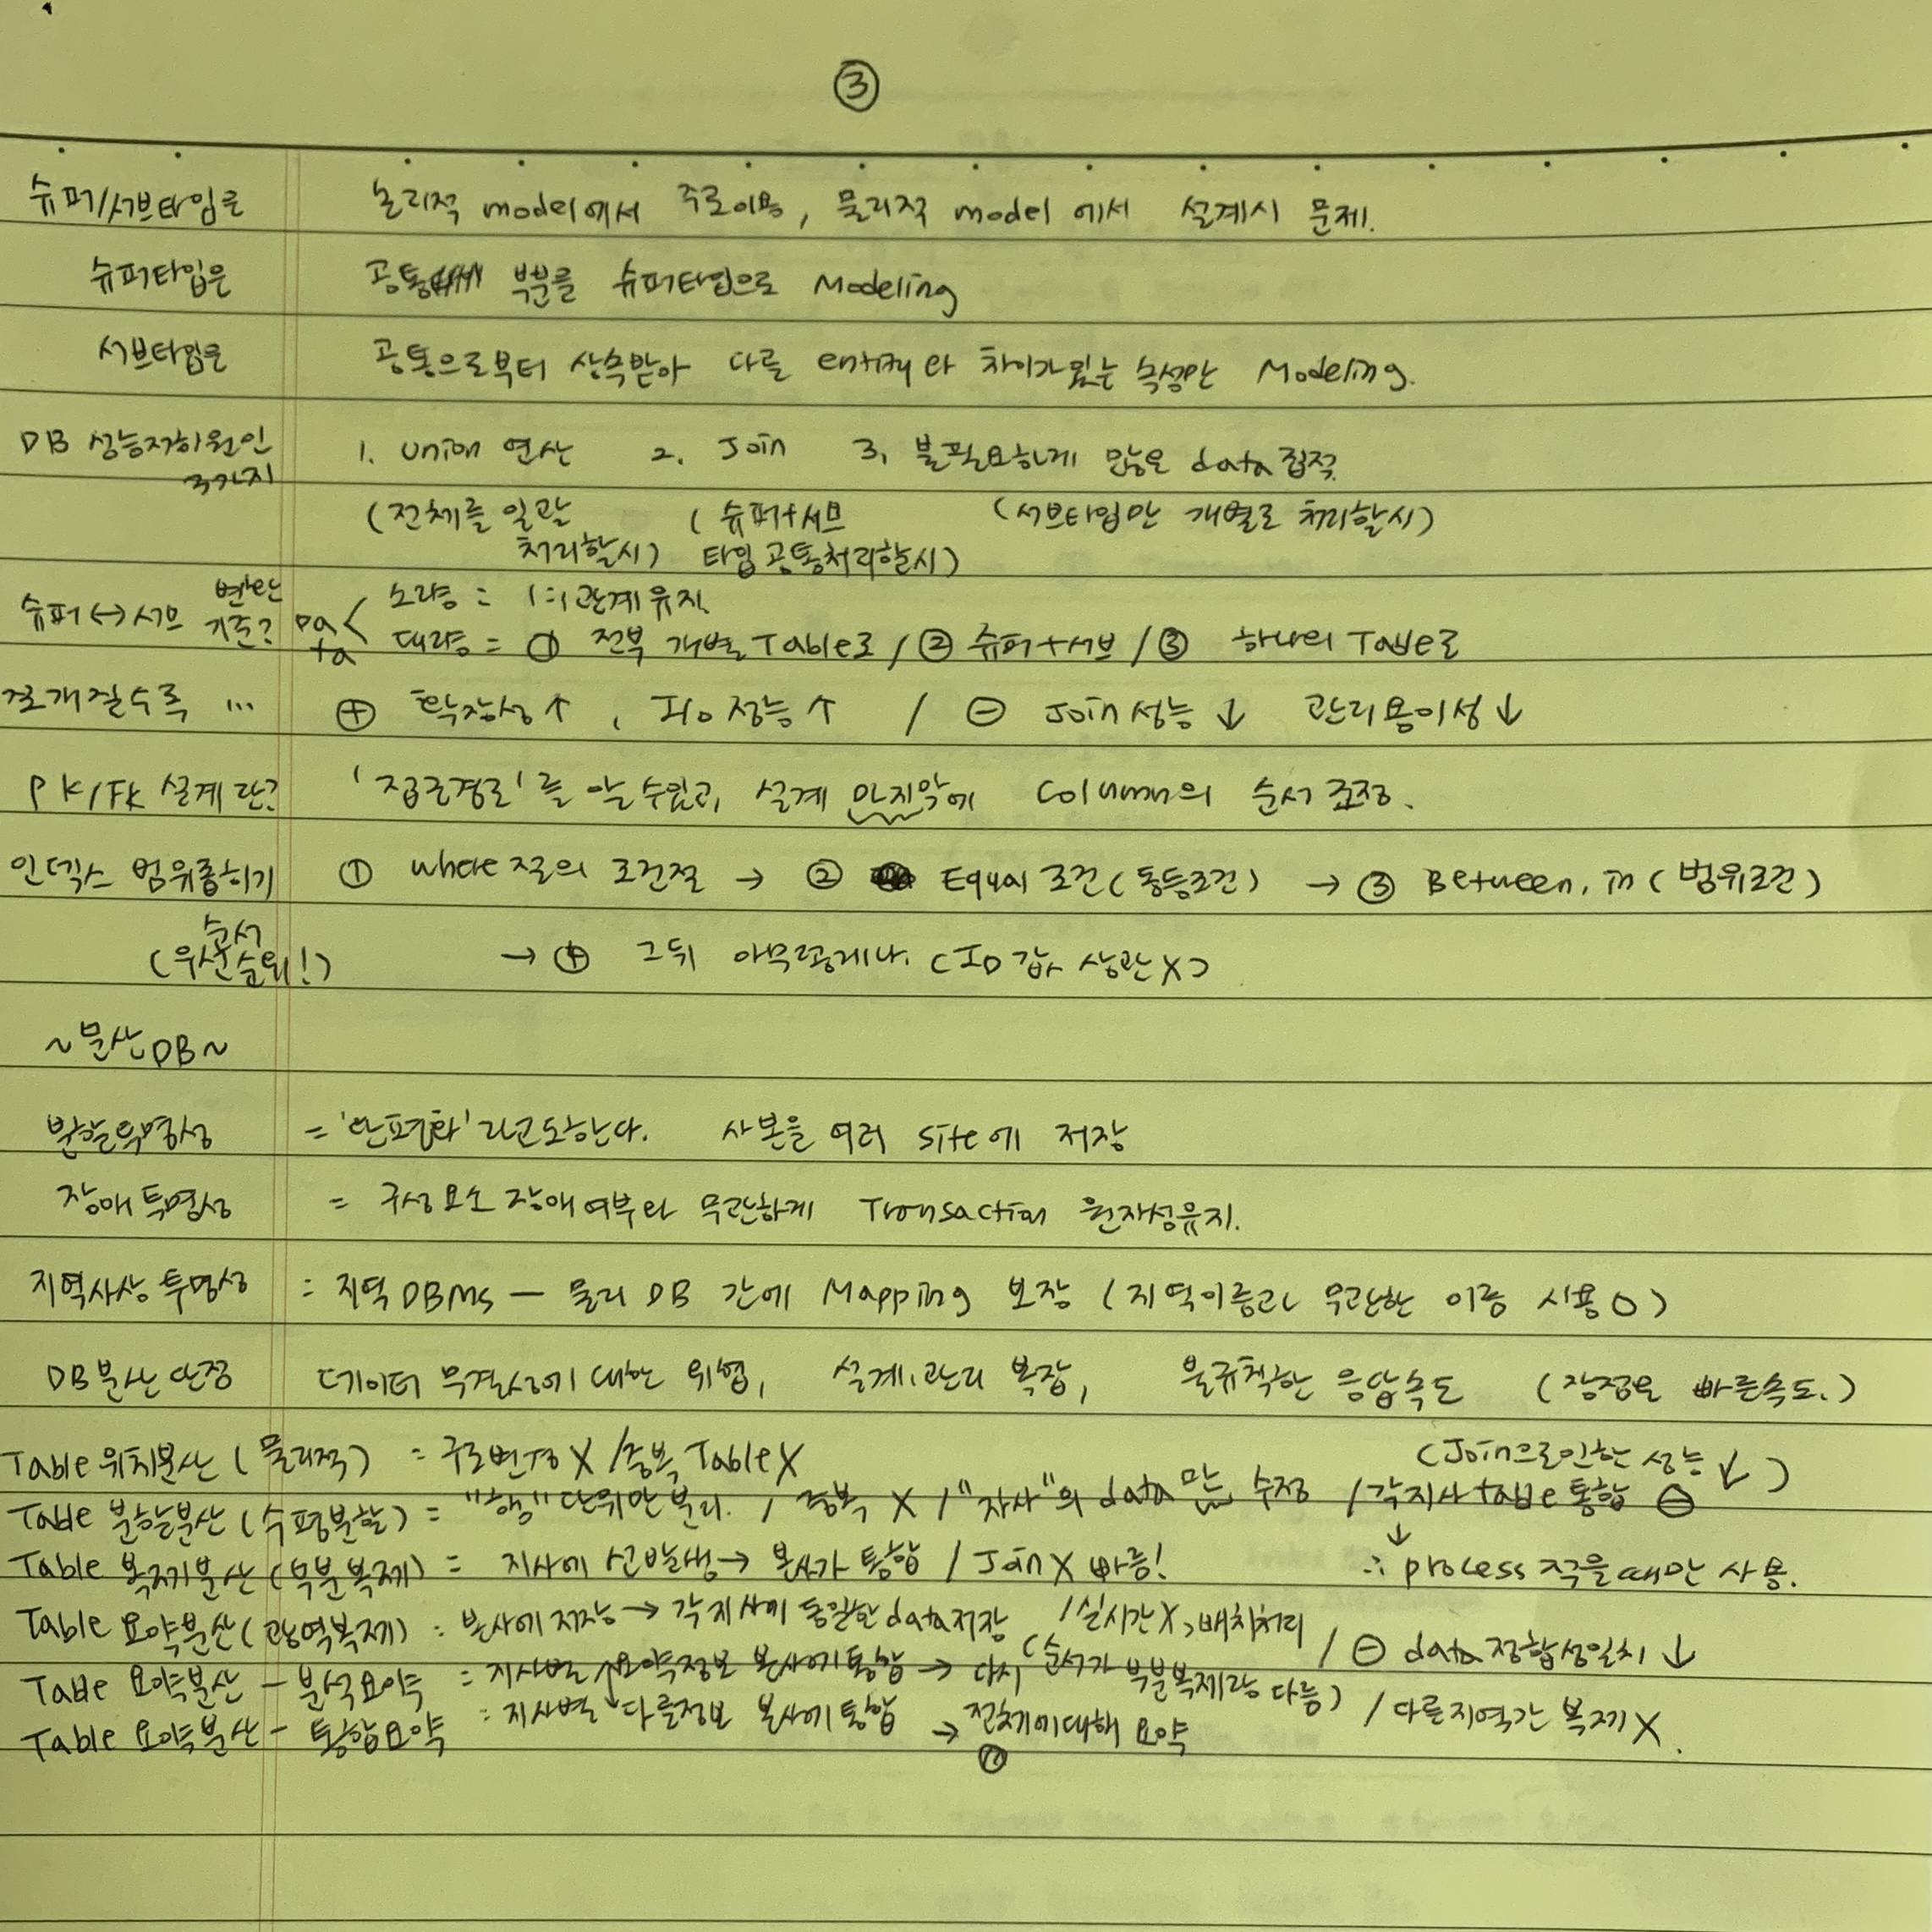 ③
슈퍼/서브타입은 논리적 model에서 주로이용, 물리적 model에서 설계시 문제.
슈퍼타입은 공통 부분를 슈퍼타입으로 Modeling
서브타입은 공통으로부터 상속받아 다른 entity와 차이가있는 속성만 Modeling.
DB 성능저하원인 1. Union 연산 2. Join 3. 불필요하게 많은 data 집적.
3가지
(전체를 일괄 (슈퍼+서브 (서브타입만 개별로 처리할시)
처리할시) 타입 공통처리할시)
슈퍼↔서브 변환 기준? Data < 소량 = 1:1 관계 유지.
대량 = ① 전부 개별 Table로 / ② 슈퍼+서브 / ③ 하나의 Table로
쪼개질수록 ... ⊕ 확장성↑, I/o 성능↑ / ⊖ Join 성능↓ 관리용이성↓
PK/FK 설계란? '접근경로'를 알 수있고, 설계 마지막에 Column의 순서 조정.
인덱스 범위좁히기 ① Where 절의 조건절 → ② Equal 조건 (동등조건) → ③ Between, in (범위조건)
순서
(우선순위!) → ④ 그뒤 아무렇게나. (IO 값 상관X)
~분산DB~
분할투명성 = '단편화'라고도한다. 사본을 여러 site에 저장
장애투명성 = 구성요소 장애여부와 무관하게 Transaction 원자성유지.
지역사상 투명성 = 지역DBMS – 물리 DB 간에 Mapping 보장 (지역이름과 무관한 이름 사용O)
DB분산 단점 데이터 무결성에 대한 위협, 설계,관리 복잡, 불규칙한 응답속도 (장점은 빠른속도.)
Table 위치분산 (물리적) = 구조변경X / 중복 Table X
(Join으로인한 성능↓)
Table 분할분산 (수평분할) = "행"단위만 분리. / 중복 X / "자사"의 data 만 수정 / 각지사 table 통합 ⊖
↓
Table 복제분산 (부분복제) = 지사에 선발생 → 본사가 통합 / Join X 빠름! ∴ process 적을때만 사용.
Table 요약분산 (광역복제) : 본사에 저장 → 각지사에 동일한 data저장 / 실시간X, 배치처리 / ⊖ data정합성일치↓
(순서가 부분복제랑 다름)
Table 요약분산 – 분석요약 = 지사별 요약정보 본사에 통합 → 다시
Table 요약분산 – 통합요약 : 지사별 다른정보 본사에 통합 → 전체에대해 요약 / 다른지역간 복제X.